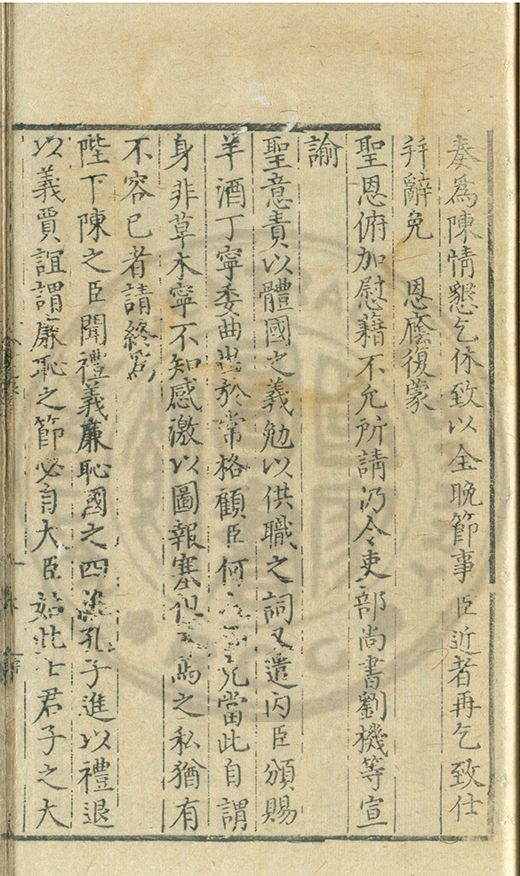 奏為陳情懇乞休致以全晚節事臣近者再乞致仕
并辭免　恩廕復蒙
聖恩俯加慰藉不允所請乃令吏部尚書劉機等宣
諭
聖意責以體國之義勉以供職之詞又遣內臣頒賜
羊酒丁寧委曲出於常格顧臣何當此自謂
身非草木寧不知感激以圖報塞但馬之私猶有
不容已者請終爲
陛下陳之臣聞禮義廉恥國之四孔子進以禮退
以義賈誼謂廉恥之節必自大臣始此士君子之大